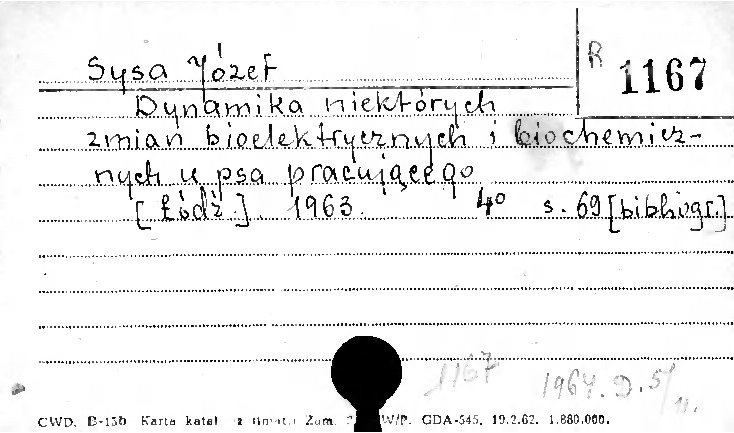 Sysa Józef
R 1167
Dynamika niektórych
zmian bioelektrycznych i biochemicz-
nych u psa pracującego
[Łódź.] 1963. 4° s. 69 [bibliogr.]
1167
1964. D. 5/11.
CWD. B-15b Karta katal Zam. W/P. GDA-545. 19.2.62. 1.880.000.